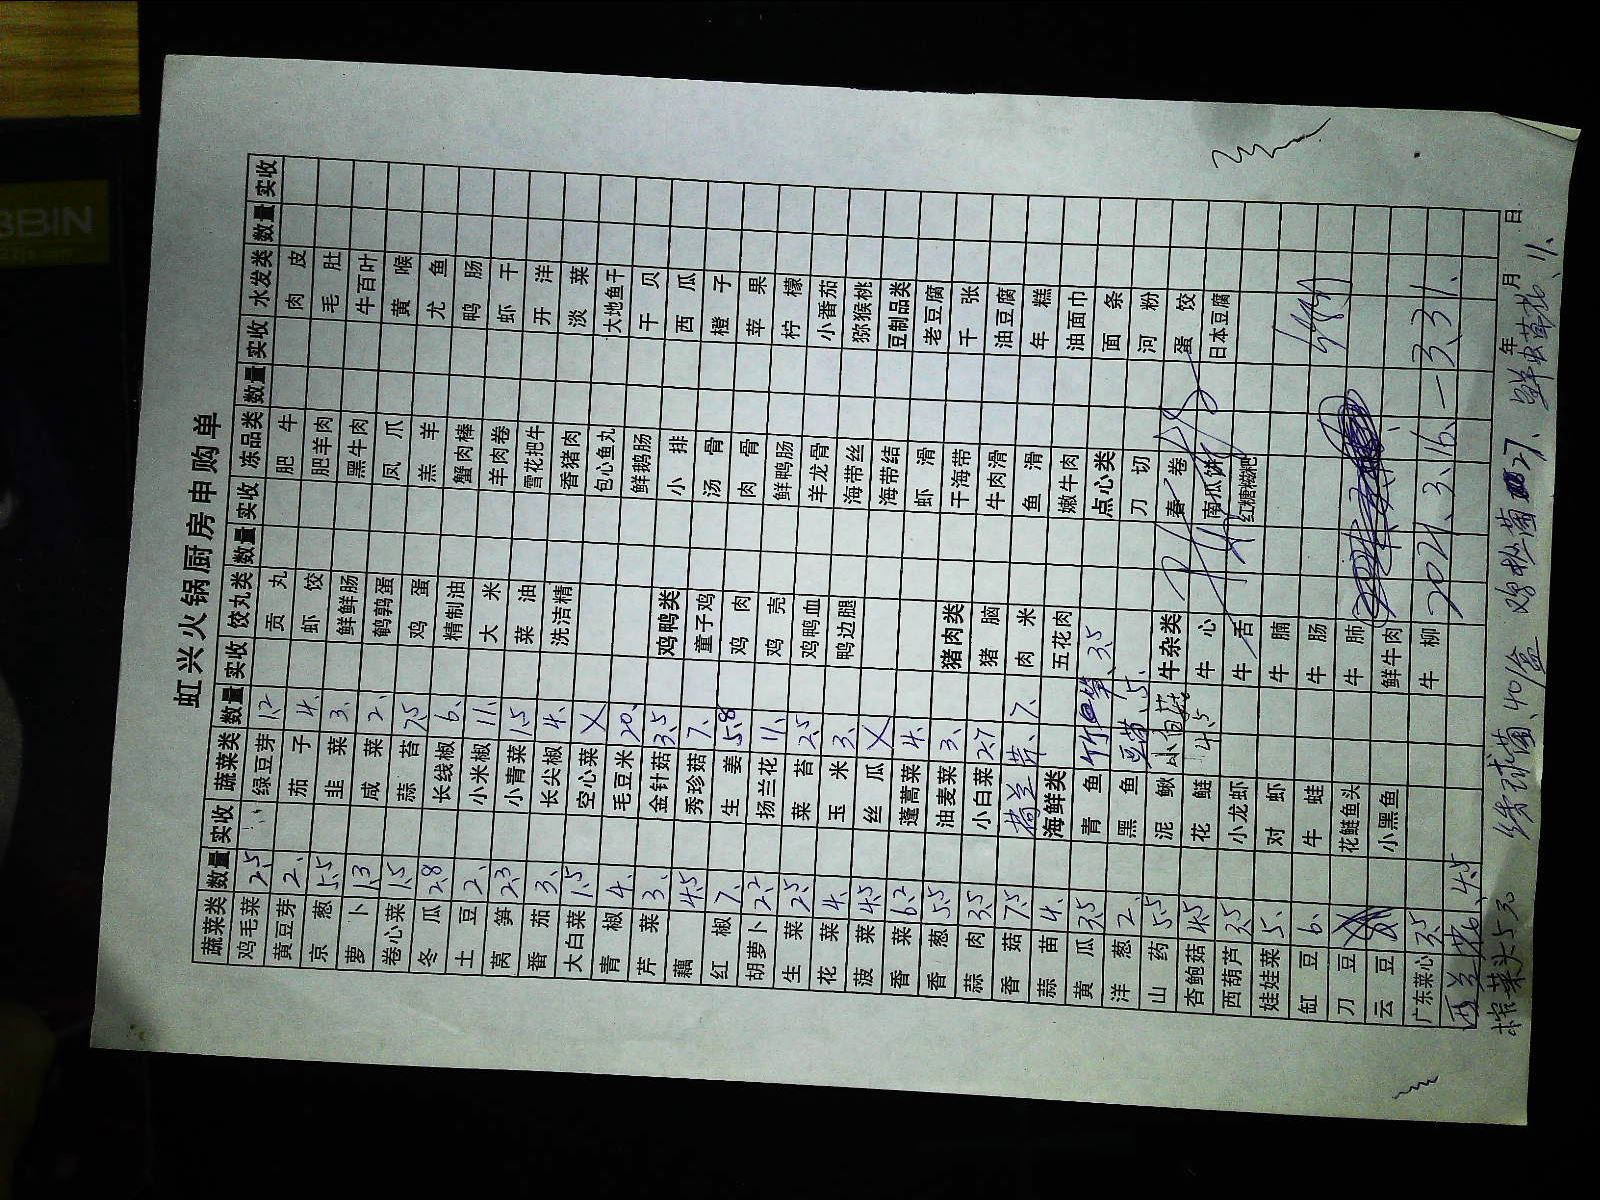 虹兴火锅厨房申购单
蔬菜类 数量 实收 蔬菜类 数量 实收 饺丸类 数量 实收 冻品类 数量 实收 水发类 数量 实收
鸡毛菜 2.5 绿豆芽 1.2 贡丸 肥牛 肉皮
黄豆芽 2. 茄子 4. 虾饺 肥羊肉 毛肚
京葱 5.5 韭菜 3. 鲜鲜肠 黑牛肉 牛百叶
萝卜 1.3 咸菜 2. 鹌鹑蛋 凤爪 黄喉
卷心菜 1.5 蒜苔 7.5 鸡蛋 羔羊 尤鱼
冬瓜 2.8 长线椒 6. 精制油 蟹肉棒 鸭肠
土豆 2. 小米椒 11. 大米 羊肉卷 虾干
莴笋 2.3 小青菜 1.5 菜油 雪花把牛 开洋
番茄 3. 长尖椒 4. 洗洁精 香猪肉 淡菜
大白菜 1.5 空心菜 X 包心鱼丸 大地鱼干
青椒 4. 毛豆米 20. 鲜鹅肠 干贝
芹菜 3. 金针菇 3.5 鸡鸭类 小排 西瓜
藕 4.5 秀珍菇 7. 童子鸡 汤骨 橙子
红椒 7. 生姜 5.8 鸡肉 肉骨 苹果
胡萝卜 2.2 扬兰花 11. 鸡壳 鲜鸭肠 柠檬
生菜 2.5 菜苔 2.5 鸡鸭血 羊龙骨 小番茄
花菜 4. 玉米 3. 鸭边腿 海带丝 猕猴桃
菠菜 4.5 丝瓜 X 海带结 豆制品类
香菜 6.2 蓬蒿菜 4. 虾滑 老豆腐
香葱 5.5 油麦菜 3. 猪肉类 干海带 千张
蒜肉 3.5 小白菜 2.7 猪脑 牛肉滑 油豆腐
香菇 7.5 荷兰芹 7. 肉米 鱼滑 年糕
蒜苗 4. 海鲜类 五花肉 嫩牛肉 油面巾
黄瓜 3.5 青鱼 3.5 点心类 面条
洋葱 2. 黑鱼 15. 刀切 河粉
山药 5.5 泥鳅 牛杂类 春卷 蛋饺
杏鲍菇 4.5 花鲢 4.5 牛心 南瓜饼 日本豆腐
西葫芦 3.5 小龙虾 牛舌 红糖糍粑
娃娃菜 5. 对虾 牛腩
缸豆 6. 牛蛙 牛肠
刀豆 花鲢鱼头 牛肺
云豆 小黑鱼 鲜牛肉
广东菜心 3.5 牛柳 2021.3.16.—3.31.
西兰花 4.5
年 月 日
榨菜头5元 绣球菌40/盒 鸡枞菌27. 鲜虫草花11.